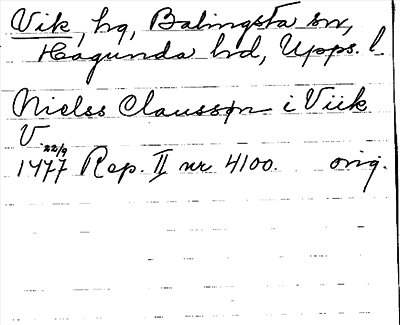 Vik, hg, Balingsta sn,
Hagunda hd, Upps. l.
Nielss Claussøn i Viik
V.
22/9
1477 Rep. II nr 4100. orig.